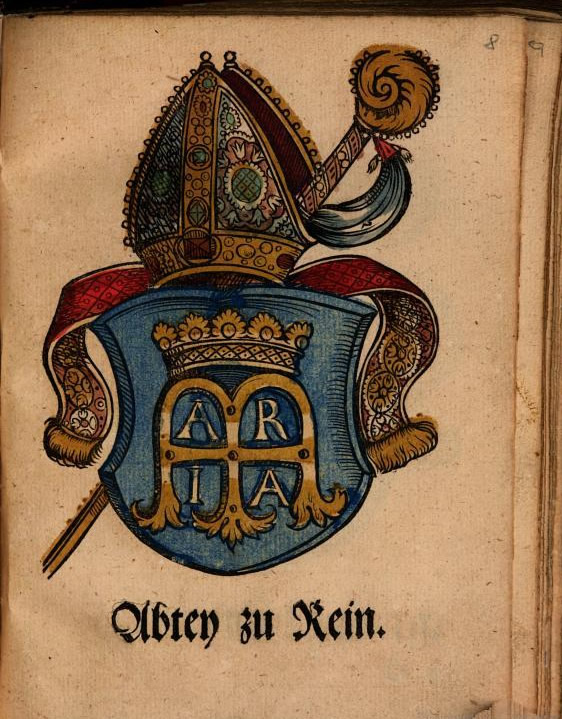 8 9
A R
I A
Abtey zu Rein.